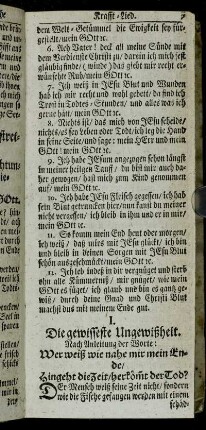 Krafft-Lied.
dem Welt-Getümmel die Ewigkeit sey für-
gestellt, mein GOtt ꝛc.
6. Ach Vater! deck all meine Sünde mit
dem Verdienste Christi zu, darein ich mich fest
gläubig winde, das gibt mir recht er-
wünschte Ruh, mein GOtt ꝛc.
7. Ich weiß in JEsu Blut und Wunden
hab ich mir recht und wohl gebett, da find ich
Trost in Todes-Stunden, und alles was ich
gerne hätt, mein GOtt ꝛc.
8. Nichts ist, das mich von JEsu scheide,
nichts, es sey Leben oder Tod, ich leg die Hand
in seine Seite, und sage: mein HErr und mein
GOtt ꝛc.
9. Ich habe JEsum angezogen schon längst
in meiner heilgen Tauf, du bist mir auch da-
her gewogen, hast mich zum Kind genommen
auf, mein GOtt ꝛc.
10. Ich habe JEsu Fleisch gegessen, ich hab
sein Blut getruncken hier, nun kanst du meiner
nicht vergessen, ich bleib in ihm und er in mir,
mein GOtt ꝛc.
11. So komm mein End heut oder morgen,
ich weiß, daß mirs mit JEsu glückt, ich bin
und bleib in deinen Sorgen mit JEsu Blut
schön ausgeschmückt, mein GOtt ꝛc.
12. Ich leb indeß in dir vergnüget und sterb
ohn alle Kümmerniß, mir gnüget, wie mein
GOtt es füget, ich glaub und bin es gantz ge-
wiß, durch deine Gnad und Christi Blut
machst dus mit meinem Ende gut.
I.
Die gewisseste Ungewißheit.
Nach Anleitung der Worte:
Wer weiß wie nahe mir mein En-
de,
Hingeht die Zeit, herkömt der Tod?
Der Mensch weiß seine Zeit nicht, sondern
wie die Fische gefangen werden mit einem